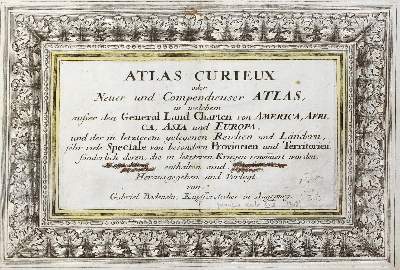 ATLAS CURIEUX
oder
Neuer und Compendieuser ATLAS,
in welchem
außer den General Land Charten von AMERICA, AFRI,
CA, ASIA und EUROPA,
und der in letzterem gelegenen Reichen und Ländern,
sehr viele Speciale von besondern Provinzien und Territorien
sonderlich deren, die in letzteren Kriegen renomirt worden,
enthalten sind
Herausgegeben und Verlegt
von
Gabriel Bodenehr, Kupferstecher in Augspurg.